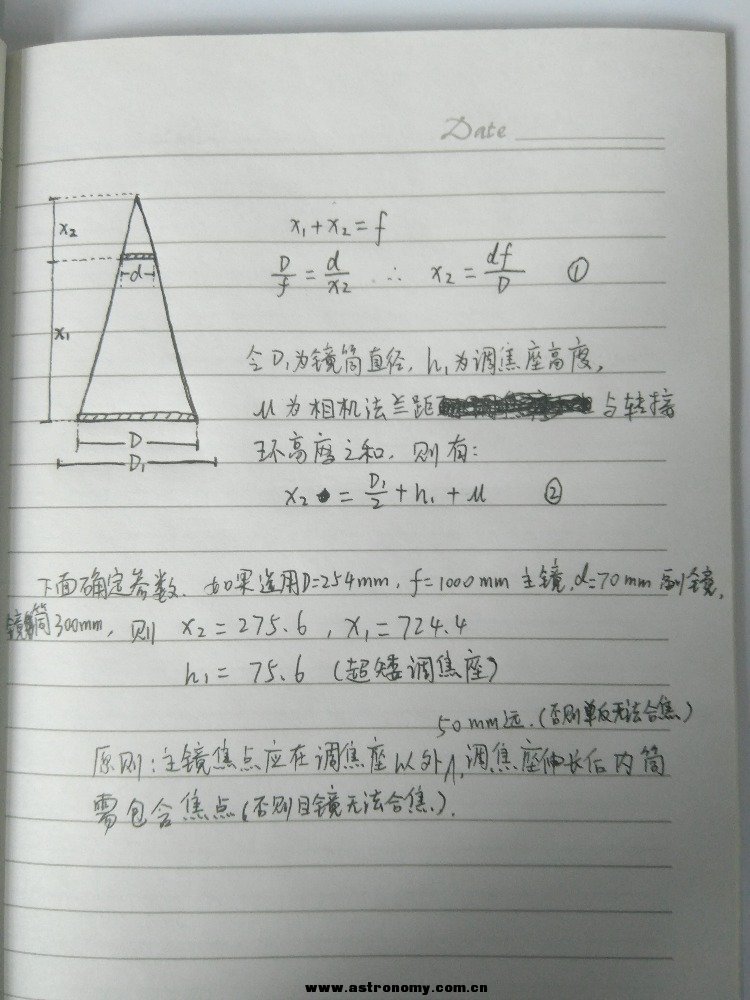 Date
x₂
d
x₁
D
D₁
x₁+x₂=f
D/f = d/x₂ ∴ x₂ = df/D ①
令D₁为镜筒直径,h₁为调焦座高度,
μ为相机法兰距与转接
环高度之和,则有:
x₂ = D₁/2 + h₁ + μ ②
下面确定参数.如果选用D=254mm,f=1000mm主镜,d=70mm副镜,
镜筒300mm,则 x₂=275.6,x₁=724.4
h₁=75.6(超矮调焦座)
50mm远.(否则单反无法合焦)
原则:主镜焦点应在调焦座以外∧,调焦座伸长后内筒
需包含焦点(否则目镜无法合焦.).
www.astronomy.com.cn